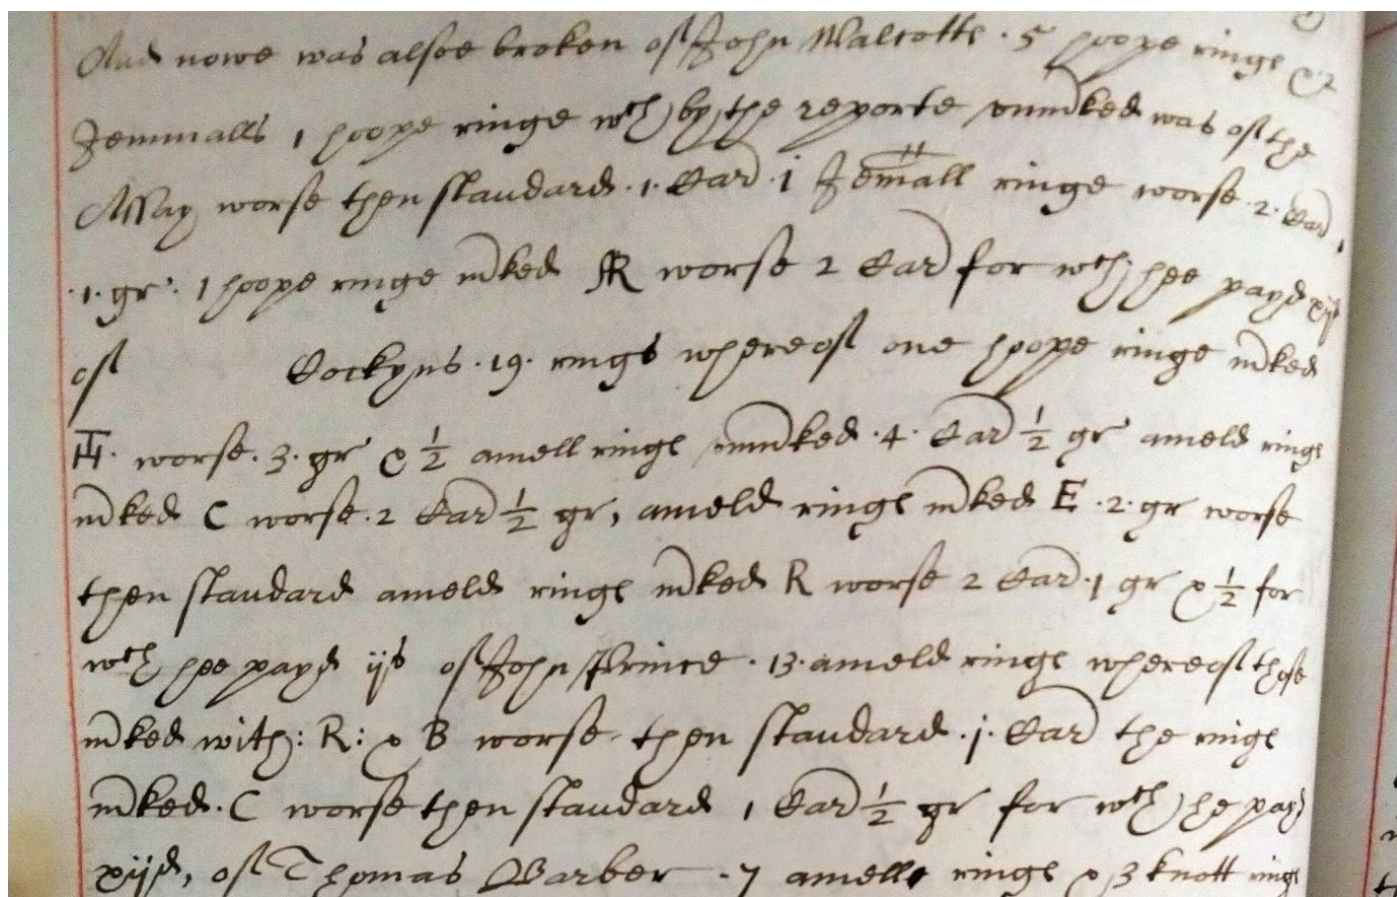 And nowe was alsoe broken of John Walcotts · 5 hoope ringes & 2
Jemmalls 1 hoope ringe wch by the reporte unmked was of the
Assay worse then standard · 1 · Car · i Jemall ringe worse · 2 · Car
· 1 · gr · 1 hoope ringe mked R worse 2 Car for wch hee payd xijd
of Cockyns · 19 · rings whereof one hoope ringe mked
worse · 3 · gr & ½ amell ringes unmked · 4 · Car ½ gr ameld ringes
mked C worse · 2 Car ½ gr, ameld ringes mked E · 2 · gr worse
then standard ameld ringes mked R worse 2 Car · 1 gr & ½ for
wch hee payd ijs of John Prince · 13 · ameld ringes whereof those
mked with : R : & B worse then standard · j · Car the ringes
mked · C worse then standard 1 Car ½ gr for wch he payd
xijd, of Thomas Barber · 7 amell ringes & 3 knott ringes